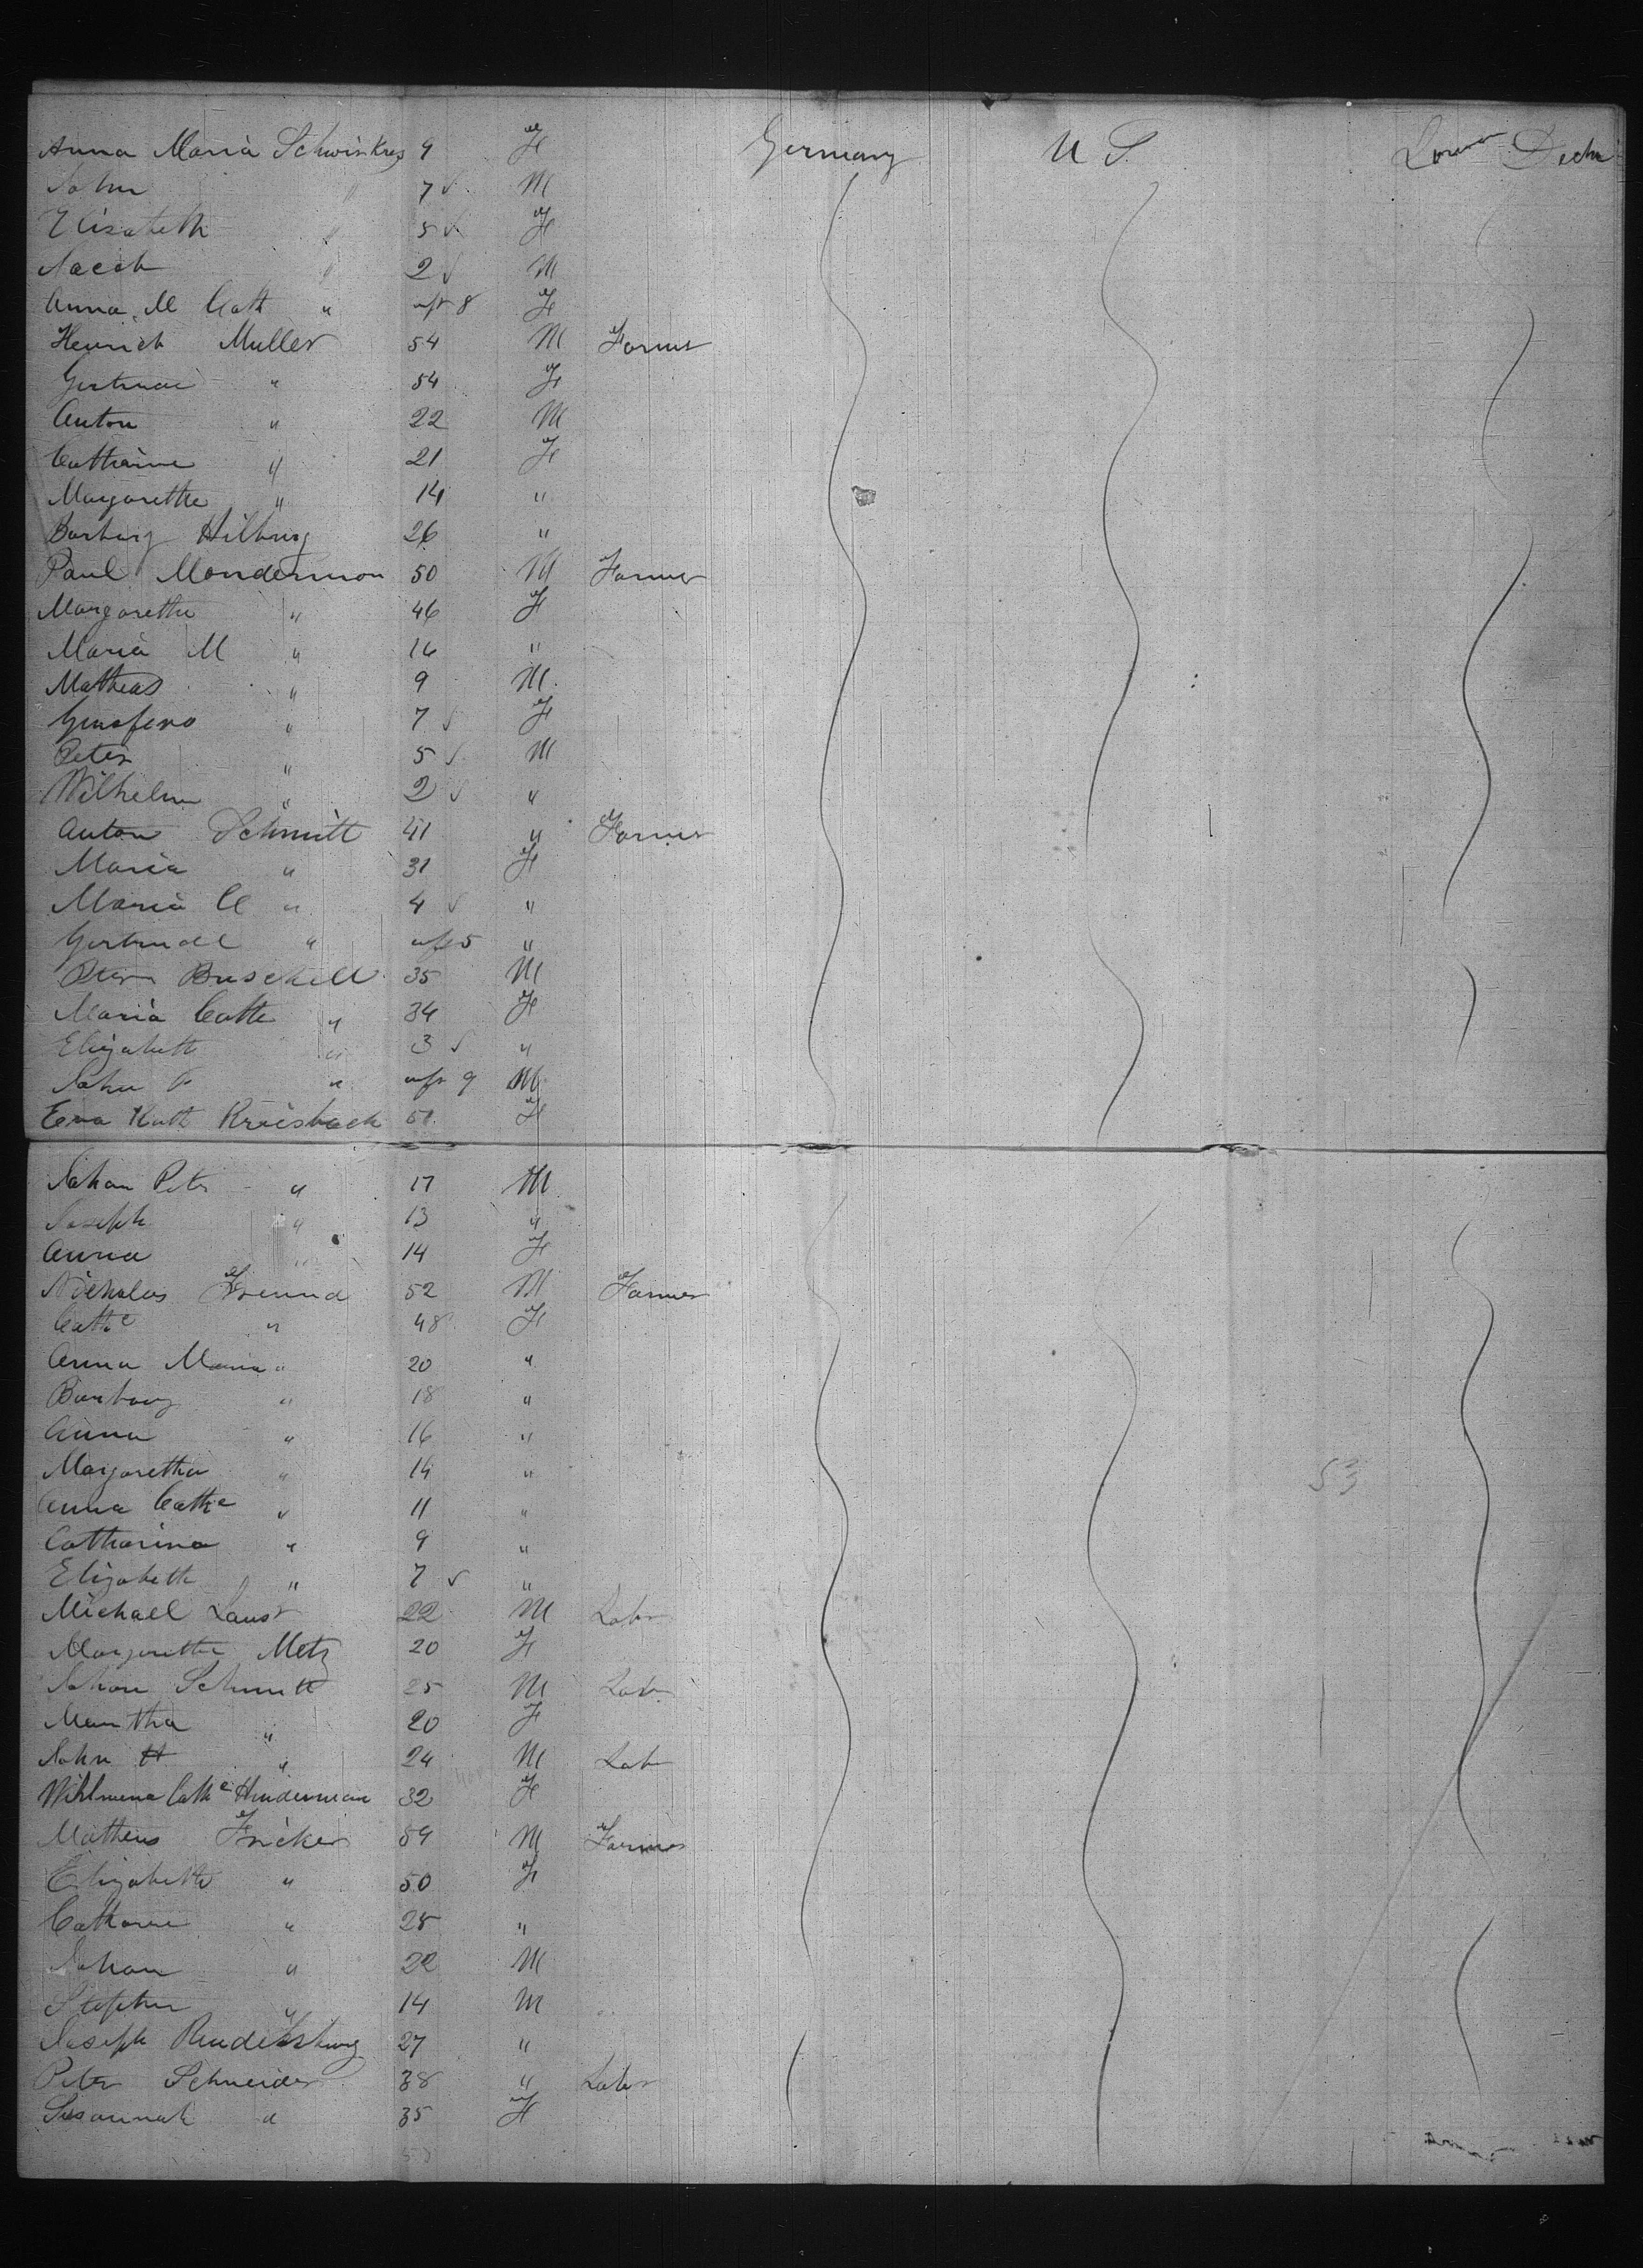 Anna Maria Schwinkres 9 F Germany U S Lower Deck
John " 7 ✓ M
Elisabeth " 5 ✓ F
Jacob " 2 ✓ M
Anna M Cath " inft 8 F
Heinrich Muller 54 M Farmer
Gertrude " 54 F
Anton " 22 M
Catherine " 21 F
Margarethe " 14 "
Hilburg 26 "
Paul Mondermon 50 M Farmer
Margarethe " 46 F
Maria M " 16 "
Mathias " 9 M
" 7 ✓ F
Peter " 5 ✓ M
Wilhelm " 2 ✓ "
Anton Schmitt 41 " Farmer
Maria " 31 F
Maria C " 4 ✓ "
Gertrude " inft 5 "
Peter Buschell 35 M
Maria Cathe " 34 F
Elizabeth " 3 ✓ "
John P " inft 9 M
Eva Kath Kreisback 51 F
Johan Peter " 17 M
Joseph " 13 "
Anna " 14 F
Nicholas Freund 52 M Farmer
Cathe " 48 F
Anna Maria " 20 "
" 18 "
Anna " 16 "
Margaretha " 14 " 53
Anna Cathe " 11 "
Catharina " 9 "
Elizabeth " 7 ✓ "
Michael 22 M Labr
Margarethe Metz 20 F
Johan Schmitt 25 M Labr
Martha " 20 F
John H " 24 M Lab
Wihlmena Cathe Hinderman 32 F
Matheus Fricker 59 M Farmer
Elizabethe " 50 F
Catharine " 25 "
Johan " 22 M
Stephen " 14 M
Joseph 27 "
Peter Schneider 38 " Labr
Susannah " 35 F